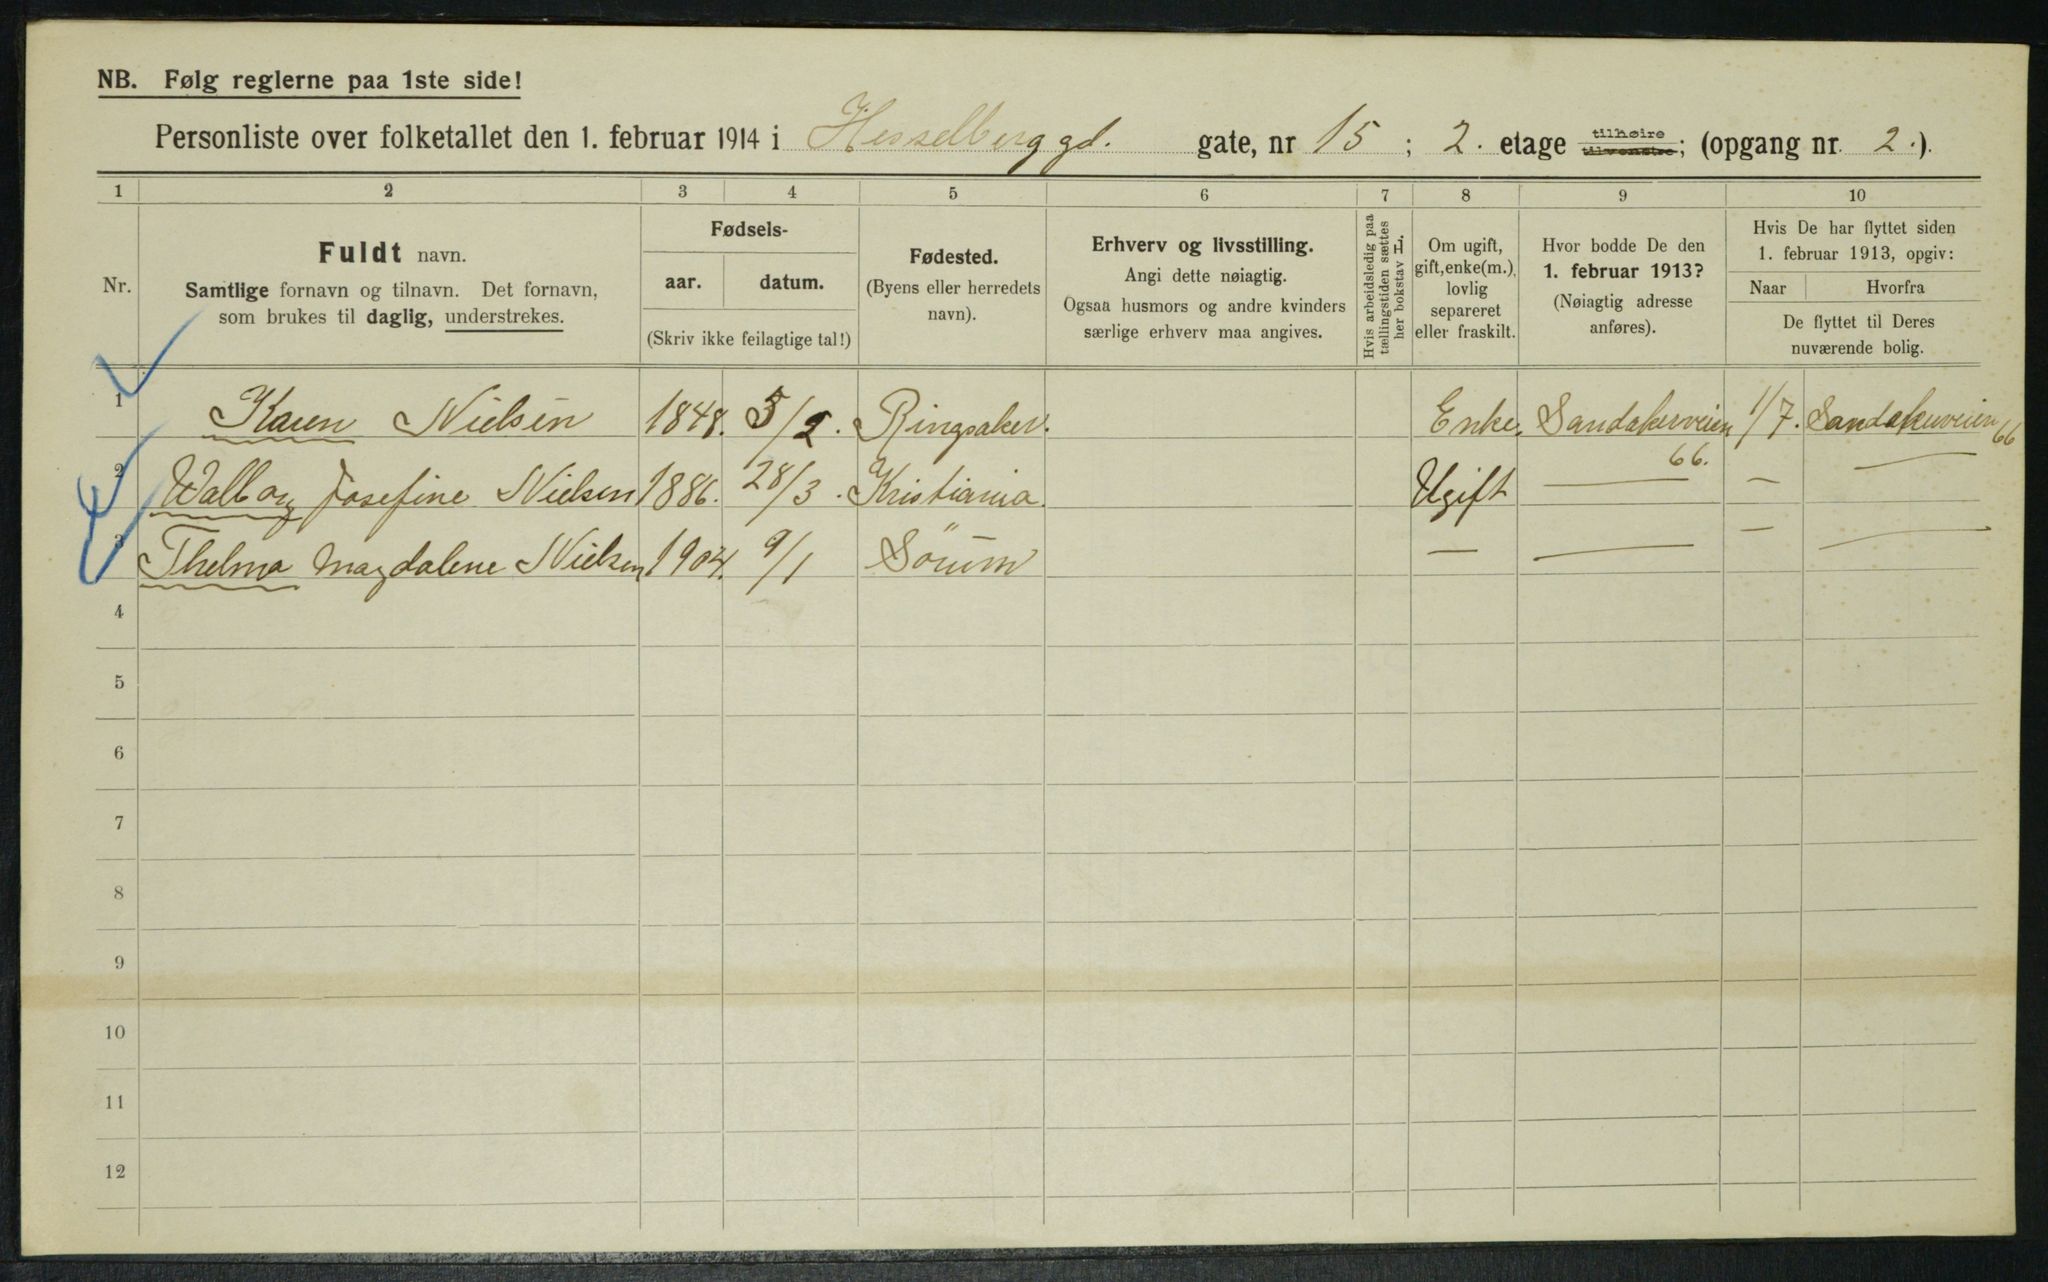 NB. Følg reglerne paa 1ste side!
Personliste over folketallet den 1. februar 1914 i Hesselberg gd. gate, nr 15; 2. etage tilhøire tilvenstre; (opgang nr. 2.).
1 2 3 4 5 6 7 8 9 10
Nr.
Fuldt navn.
Samtlige fornavn og tilnavn. Det fornavn,
som brukes til daglig, understrekes.
Fødsels-
aar. datum.
(Skriv ikke feilagtige tal!)
Fødested.
(Byens eller herredets
navn).
Erhverv og livsstilling.
Angi dette nøiagtig.
Ogsaa husmors og andre kvinders
særlige erhverv maa angives.
Hvis arbeidsledig paa
tællingstiden sættes
her bokstav L.
Om ugift,
gift, enke(m.),
lovlig
separeret
eller fraskilt.
Hvor bodde De den
1. februar 1913?
(Nøiagtig adresse
anføres).
Hvis De har flyttet siden
1. februar 1913, opgiv:
Naar Hvorfra
De flyttet til Deres
nuværende bolig.
1 Karen Nielsen 1848. 5/2. Ringsaker. Enke. Sandakerveien 66. 1/7. Sandakerveien 66
2 Walborg Josefine Nielsen 1886. 28/3. Kristiania. Ugift — — —
3 Thelma Magdalene Nielsen 1904. 9/1 Sörum — — — —
4
5
6
7
8
9
10
11
12